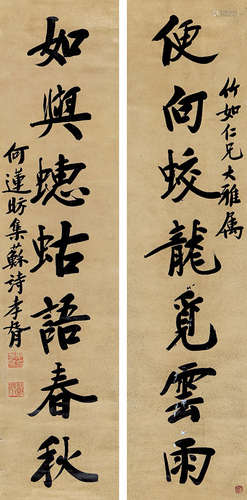 竹如仁兄大雅属
便向蛟龍覓雲雨
如與蟪蛄語春秋
何蓮昉集蘇詩李脣